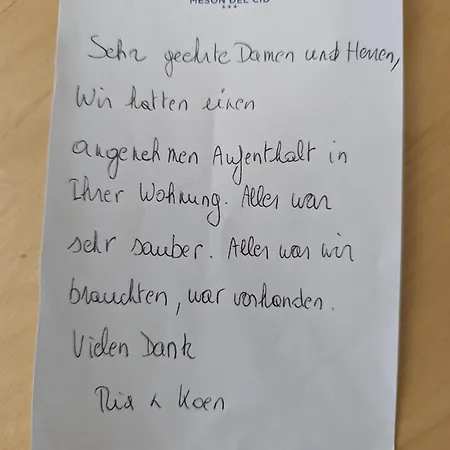 MESON DEL CID
★★★
Sehr geehrte Damen und Herren,
Wir hatten einen
angenehmen Aufenthalt in
Ihrer Wohnung. Alles war
sehr sauber. Alles was wir
brauchten, war vorhanden.
Vielen Dank
Ria & Koen